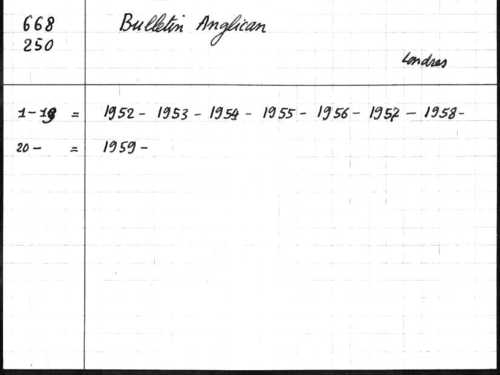 668 Bulletin Anglican
250
Londres
1-19 = 1952 - 1953 - 1954 - 1955 - 1956 - 1957 - 1958 -
20 - = 1959 -